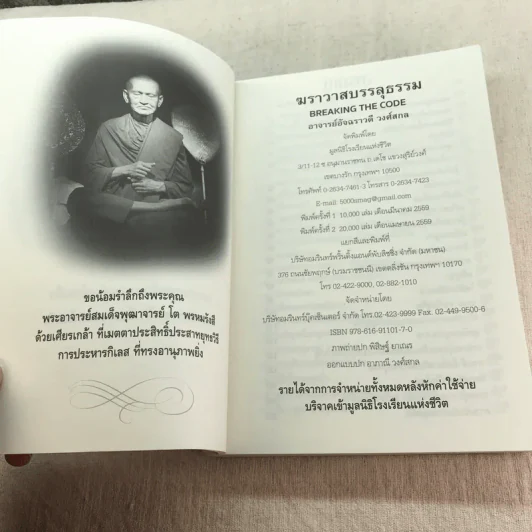 ขอน้อมรำลึกถึงพระคุณ
พระอาจารย์สมเด็จพุฒาจารย์ โต พรหมรังสี
ด้วยเศียรเกล้า ที่เมตตาประสิทธิ์ประสาทยุทธวิธี
การประหารกิเลส ที่ทรงอานุภาพยิ่ง
ฆราวาสบรรลุธรรม
BREAKING THE CODE
อาจารย์อัจฉราวดี วงศ์สกล
จัดพิมพ์โดย
มูลนิธิโรงเรียนแห่งชีวิต
3/11-12 ซ.อนุมานราชธน ถ.เดโช แขวงสุริยวงศ์
เขตบางรัก กรุงเทพฯ 10500
โทรศัพท์ 0-2634-7461-3 โทรสาร 0-2634-7423
E-mail: 5000smag@gmail.com
พิมพ์ครั้งที่ 1 10,000 เล่ม เดือนมีนาคม 2559
พิมพ์ครั้งที่ 2 20,000 เล่ม เดือนเมษายน 2559
แยกสีและพิมพ์ที่
บริษัทอมรินทร์พริ้นติ้งแอนด์พับลิชชิ่ง จำกัด (มหาชน)
376 ถนนชัยพฤกษ์ (บรมราชชนนี) เขตตลิ่งชัน กรุงเทพฯ 10170
โทร 02-422-9000, 02-882-1010
จัดจำหน่ายโดย
บริษัทอมรินทร์บุ๊คเซ็นเตอร์ จำกัด โทร.02-423-9999 Fax. 02-449-9500-6
ISBN 978-616-91101-7-0
ภาพถ่ายปก พิสิษฐ์ ยาเณร
ออกแบบปก อาภาณี วงศ์สกล
รายได้จากการจำหน่ายทั้งหมดหลังหักค่าใช้จ่าย
บริจาคเข้ามูลนิธิโรงเรียนแห่งชีวิต